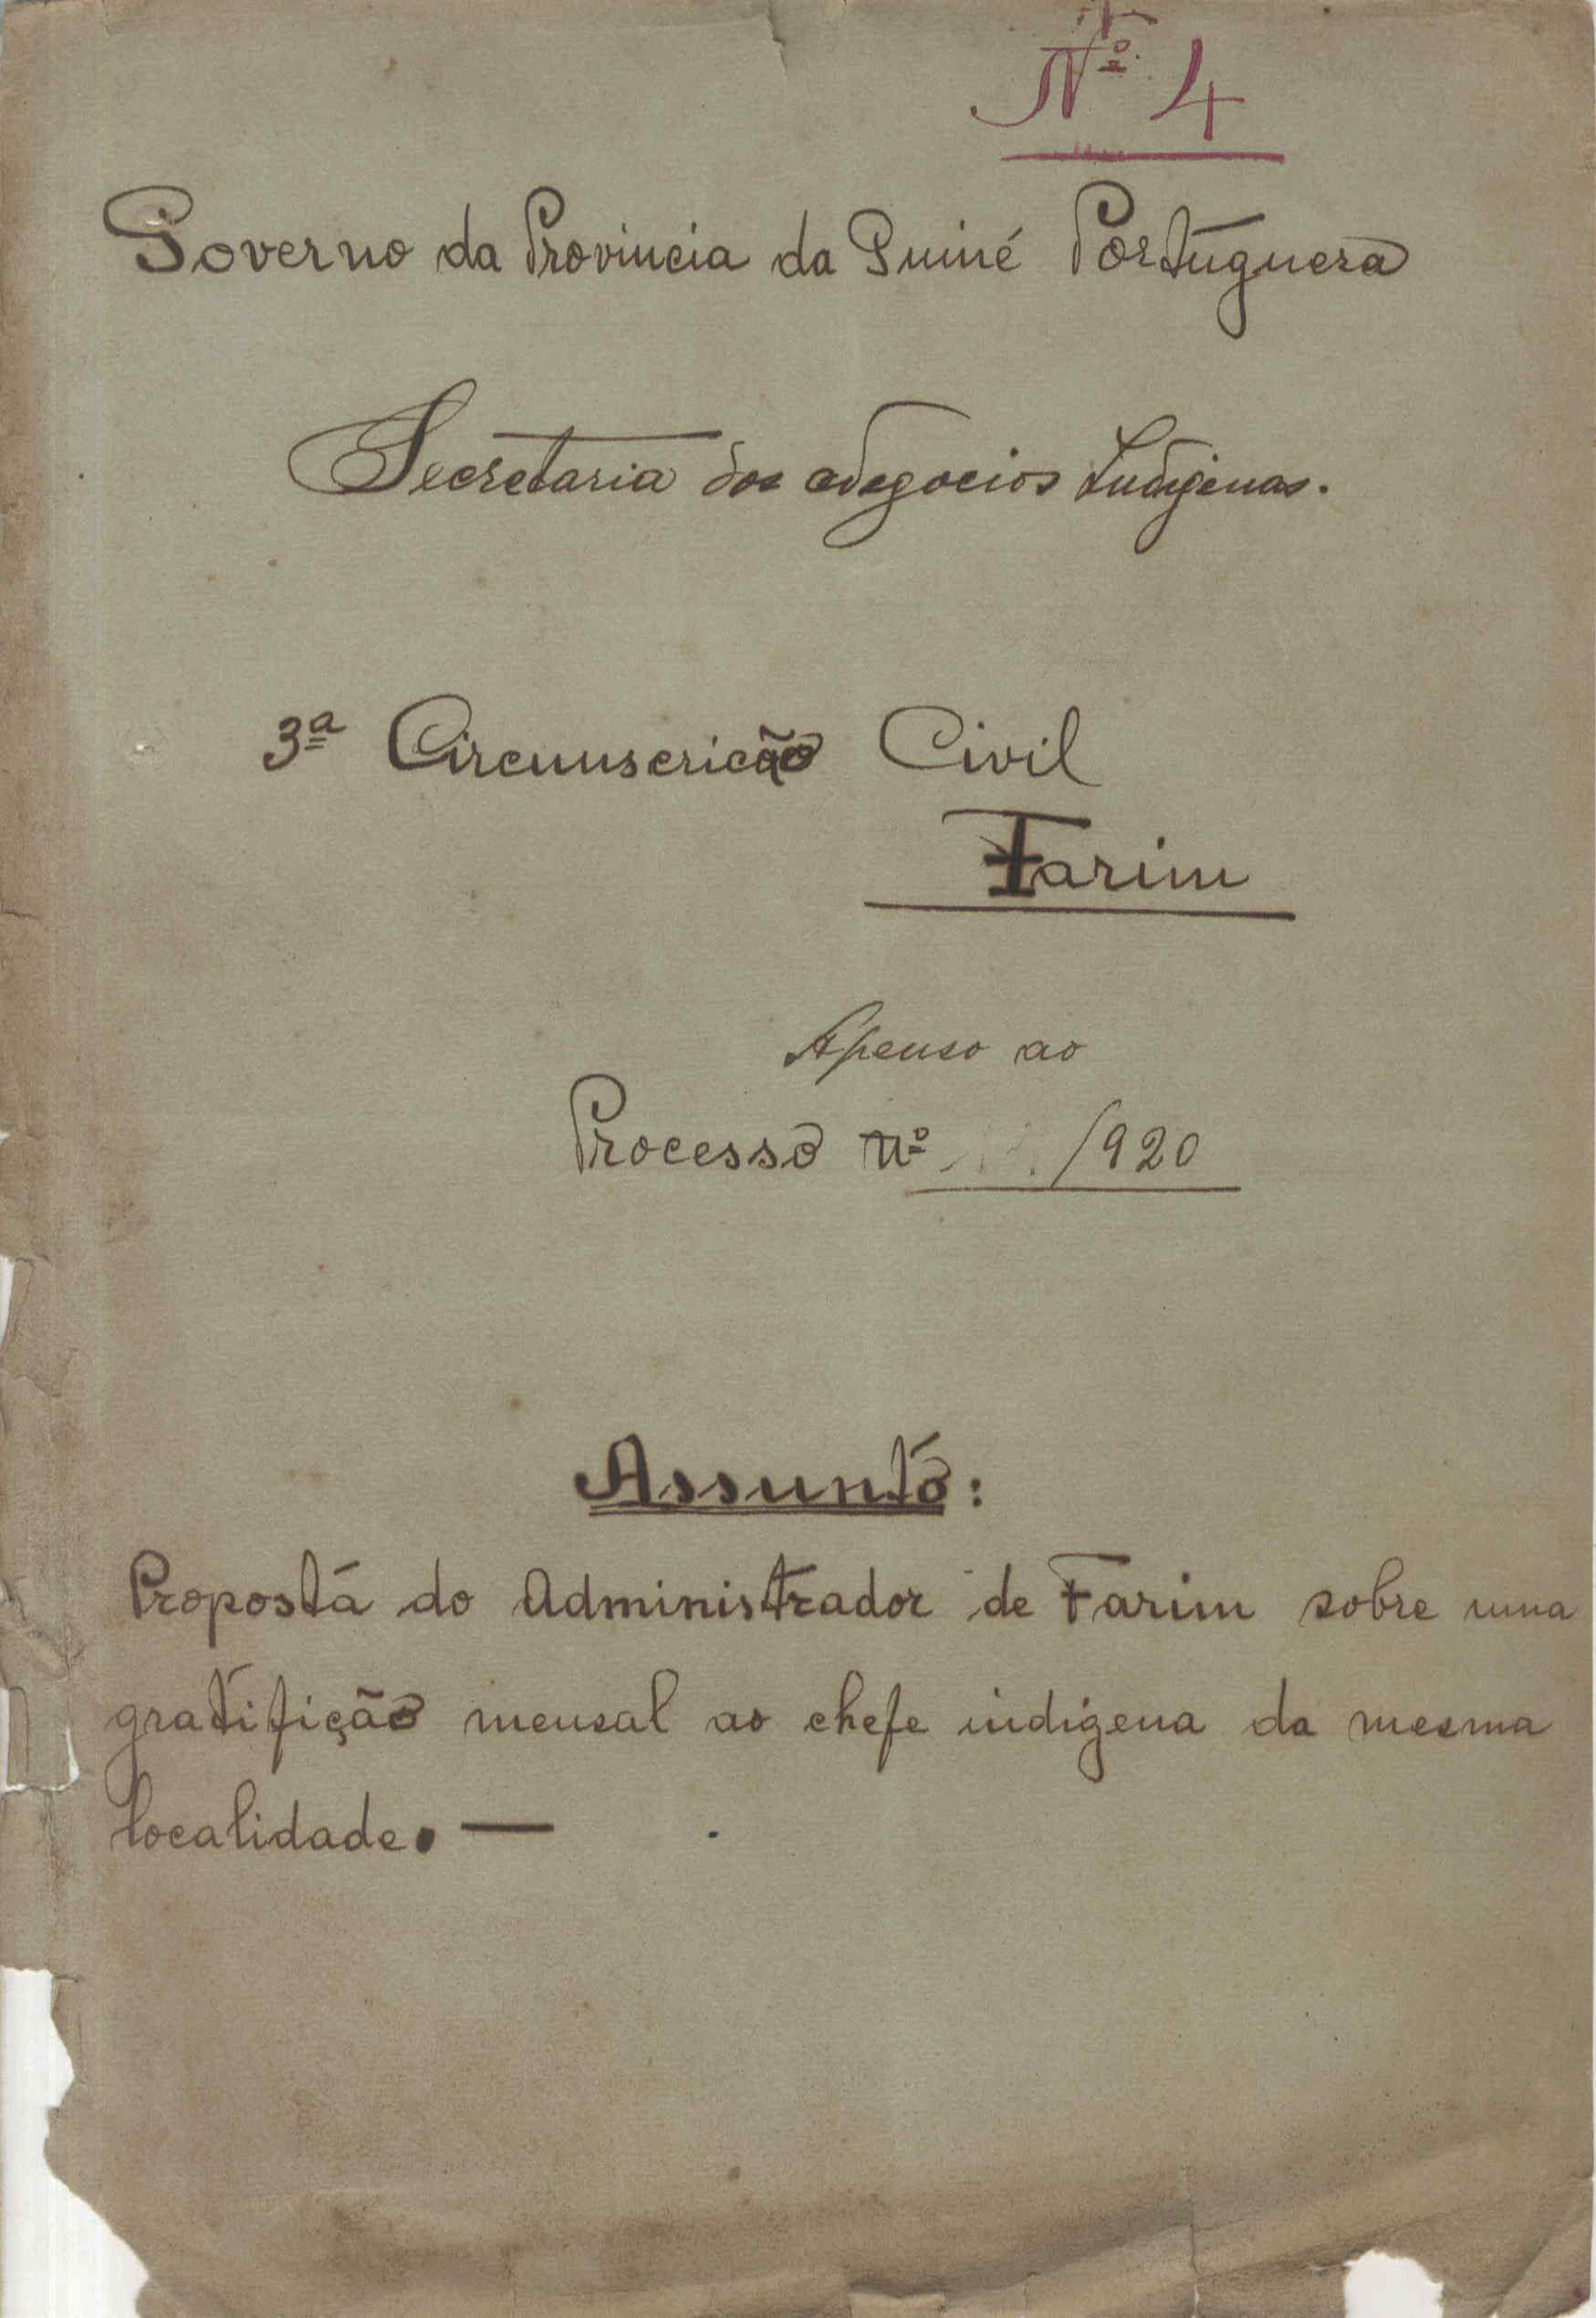 Nº 4
Governo da Provincia da Guiné Portuguesa
Secretaria dos Negocios Indigenas.
3ª Circunscrição Civil
Farim
Apenso ao
Processo nº /920
Assunto:
Proposta do Administrador de Farim sobre uma
gratifição mensal ao chefe indigena da mesma
localidade. —